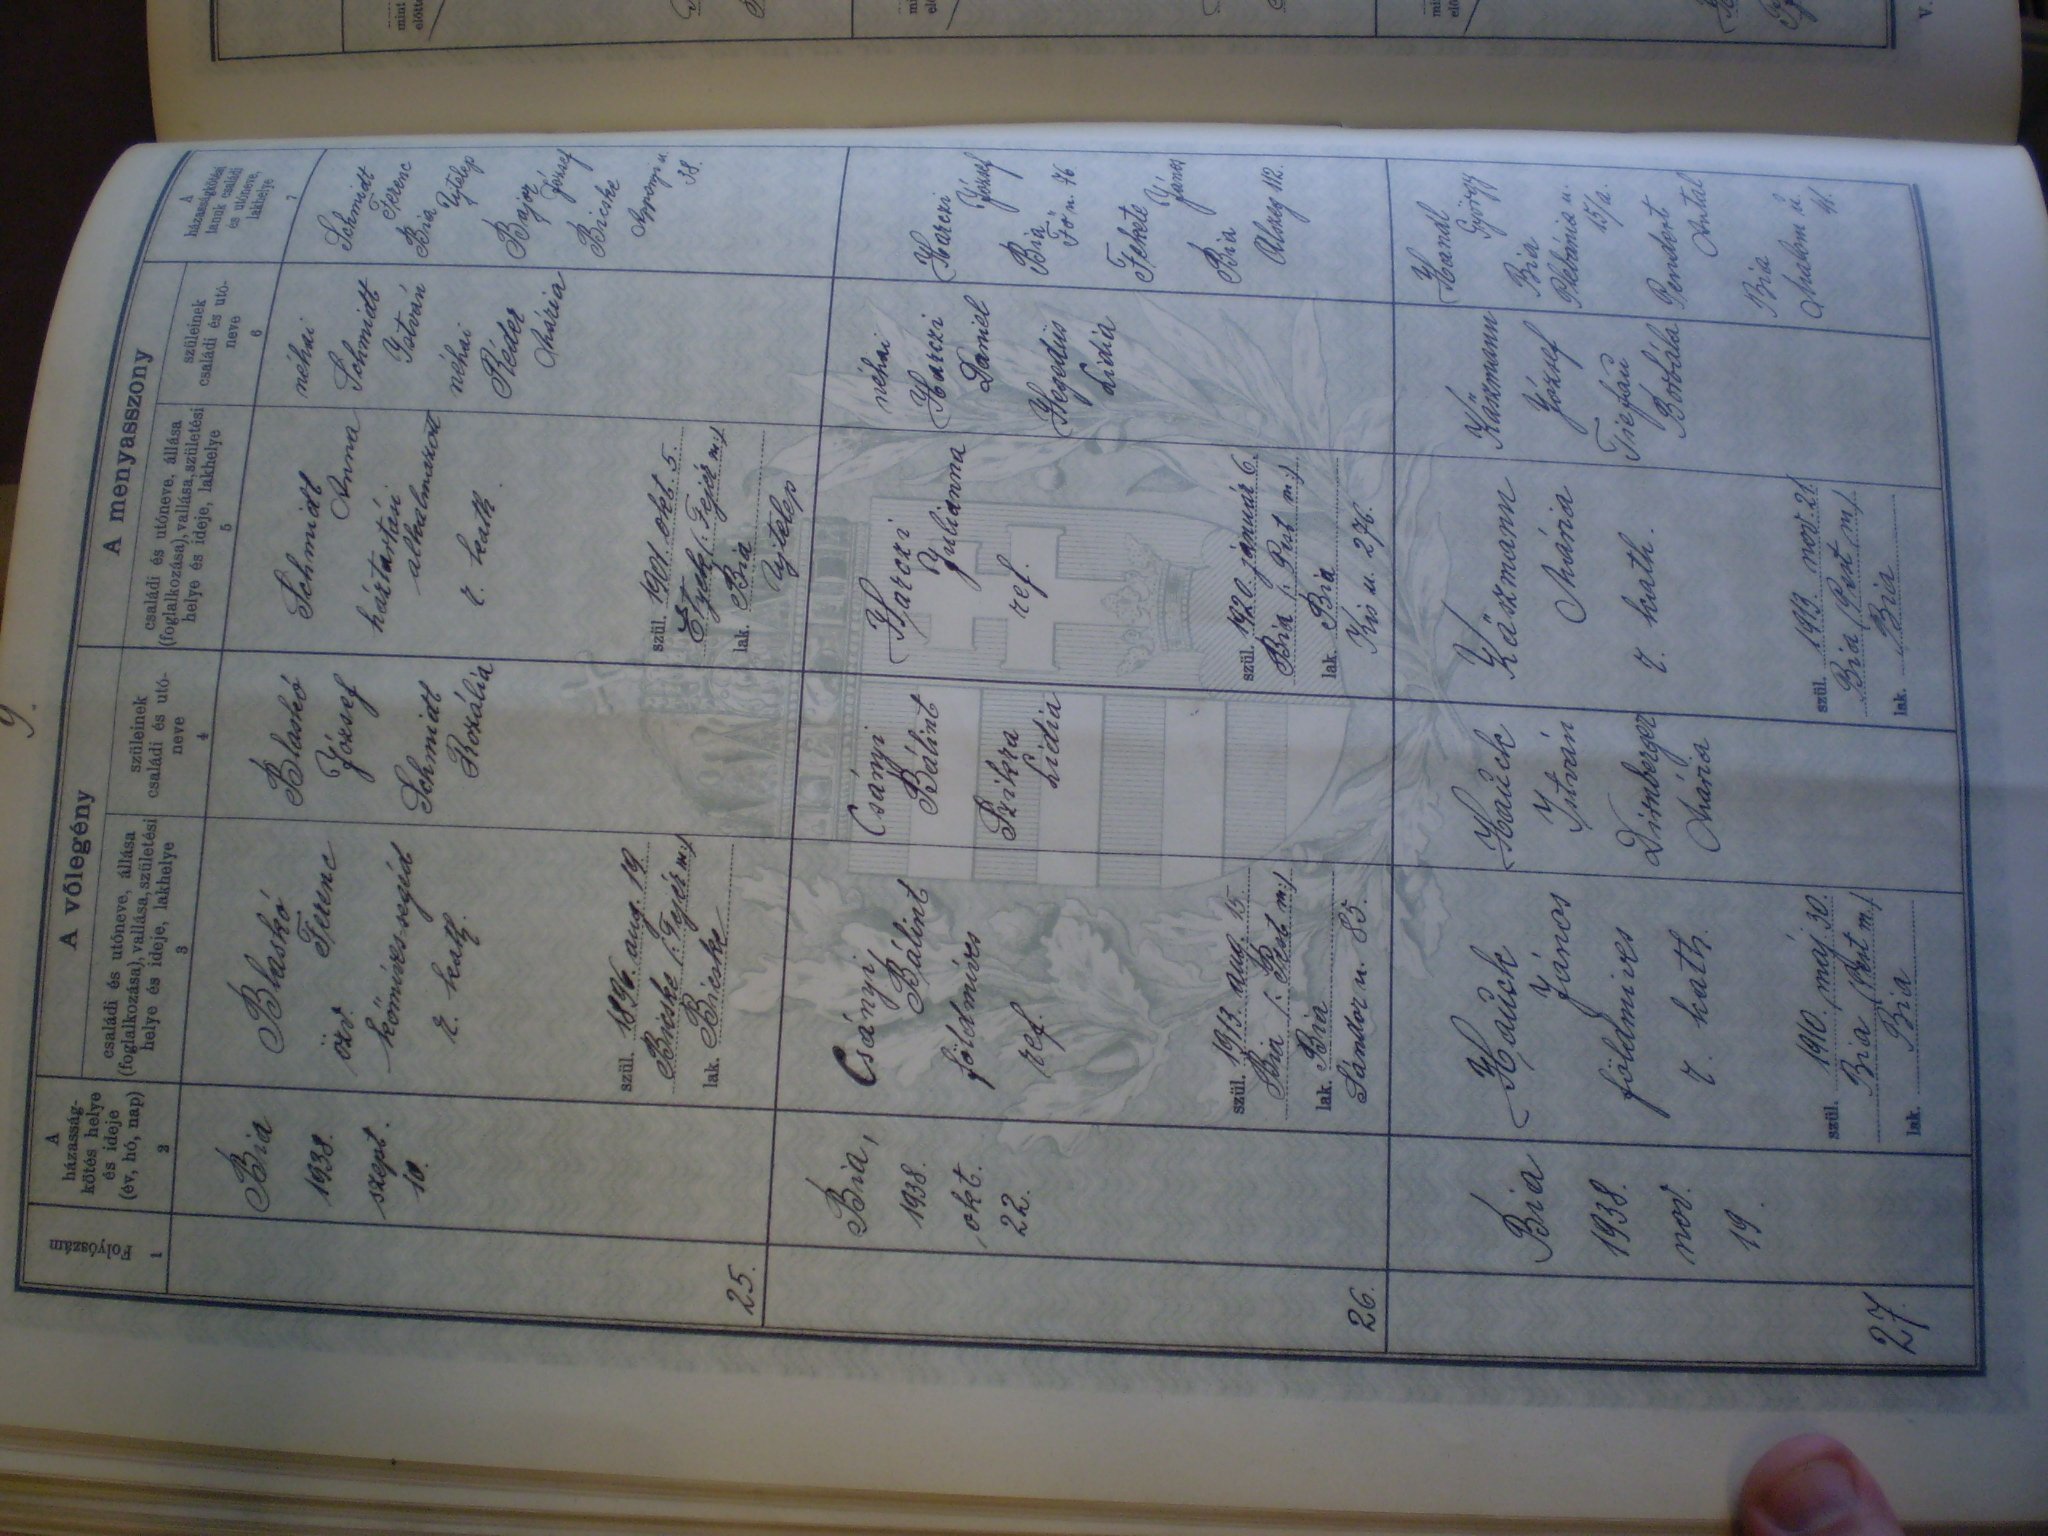 9.
A vőlegény
A menyasszony
Folyószám
A
házasság-
kötés helye
és ideje
(év, hó, nap)
családi és utóneve, állása
(foglalkozása), vallása, születési
helye és ideje, lakhelye
szüleinek
családi és utó-
neve
családi és utóneve, állása
(foglalkozása), vallása, születési
helye és ideje, lakhelye
szüleinek
családi és utó-
neve
A
házasságkötési
tanuk családi
és utóneve,
lakhelye
1
2
3
4
5
6
7
25.
Bia
1938.
szept.
10.
Blaskó
Ferenc
özv.
kőmívessegéd
r. kath.
szül. 1896. aug. 19.
Bicske (: Fejér m :)
lak. Bicske
Blaskó
József
Schmidt
Rozália
Schmidt
Anna
háztartási
alkalmazott
r. kath.
szül. 1901. okt. 5.
Etyek (: Fejér m :)
lak. Bia
Ujtelep
néhai
Schmidt
István
néhai
Réder
Mária
Schmidt
Ferenc
Bia
Ujtelep
Bajor
József
Bicske
38.
26.
Bia,
1938.
okt.
22.
Csányi
Bálint
földmíves
ref.
szül. 1913. aug. 15.
Bia (: Pest m :)
lak. Bia
Sándor u. 85.
Csányi
Bálint
Szikra
Lidia
Harczi
Julianna
ref.
szül. 1920. január 6.
Bia (: Pest m :)
lak. Bia
Kis u. 276.
néhai
Harczi
Daniel
Hegedüs
Lidia
Harczi
József
Bia
Fő u. 76
Fekete
János
Bia
Alszeg 112.
27.
Bia
1938.
nov.
19.
Hauck
János
földmives
r. kath.
szül. 1910. máj. 30.
Bia (Pest m.)
lak. Bia
Hauck
István
Dirnberger
Mária
Käszmann
Mária
r. kath.
szül. 1913. nov. 21.
Bia (Pest m.)
lak. Bia
Käszmann
József
Borbála
Handl
György
Bia
Plébánia u.
15/a.
Pendert
Antal
Bia
Malom u.
41.
mint
előtt
mint
elő
mi
elő
V.